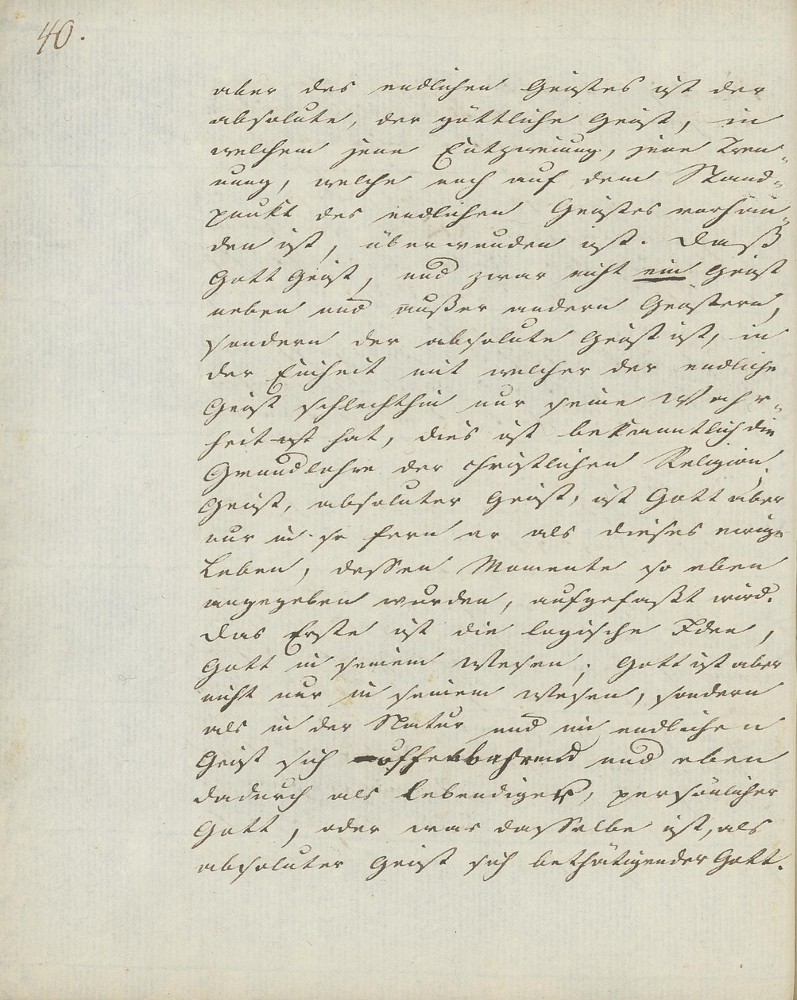 40.
aber des endlichen Geistes ist der
absolute, der göttliche Geist, in
welchem jene Entzweiung, jene Tren-
nung, welche noch auf dem Stand-
punkt des endlichen Geistes vorhan-
den ist, überwunden ist. Daß
Gott Geist, und zwar nicht ein Geist
neben und außer andern Geistern,
sondern der absolute Geist ist, in
der Einheit mit welcher der endliche
Geist schlechthin nur seine Wahr-
heit hat, dies ist bekanntlich die
Grundlehre der christlichen Religion.
Geist, absoluter Geist, ist Gott aber
nur in so fern er als dieses ewige
Leben, dessen Momente so eben
angegeben wurden, aufgefaßt wird.
Das Erste ist die logische Idee,
Gott in seinem Wesen; Gott ist aber
nicht nur in seinem Wesen, sondern
als in der Natur und im endlichen
Geist sich offenbahrend und eben
dadurch als lebendiger, persönlicher
Gott, oder was dasselbe ist, als
absoluter Geist sich bethätigender Gott.